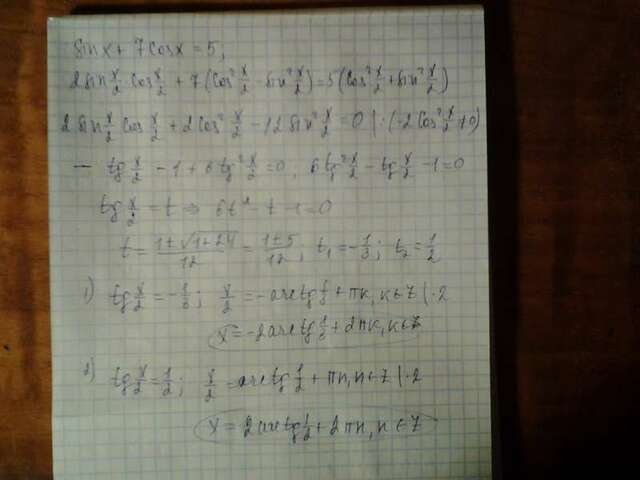 sinx + 7cosx = 5;
2 sin x/2 · cos x/2 + 7(cos² x/2 - sin² x/2) = 5(cos² x/2 + sin² x/2)
2 sin x/2 cos x/2 + 2cos² x/2 - 12 sin² x/2 = 0 | : (-2cos² x/2 ≠ 0)
- tg x/2 - 1 + 6tg² x/2 = 0; 6tg² x/2 - tg x/2 - 1 = 0
tg x/2 = t ⇒ 6t² - t - 1 = 0
t = (1±√(1+24))/12 = (1±5)/12; t₁ = -1/3; t₂ = 1/2
1) tg x/2 = -1/3; x/2 = -arctg 1/3 + πк, к∈Z | · 2
x = -2arctg 1/3 + 2πк, к∈Z
2) tg x/2 = 1/2; x/2 = arctg 1/2 + πn, n∈Z | · 2
x = 2arctg 1/2 + 2πn, n∈Z